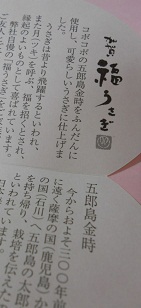 加賀
福うさぎ
コボコボの五郎島金時をふんだんに
使用し、可愛らしいうさぎに仕上げま
した。
うさぎは昔より飛躍するといわれ、
また月(ツキ)を呼び、福を招くとされ、
縁起のよいものとして喜ばれています。
弊社自慢の「福うさぎ」
五郎島金時
今からおよそ三〇〇年前
に遠く薩摩の国(鹿児島)か
の国(石川)へ五郎島の太郎
を持ち帰り、栽培を伝えた
といわれ